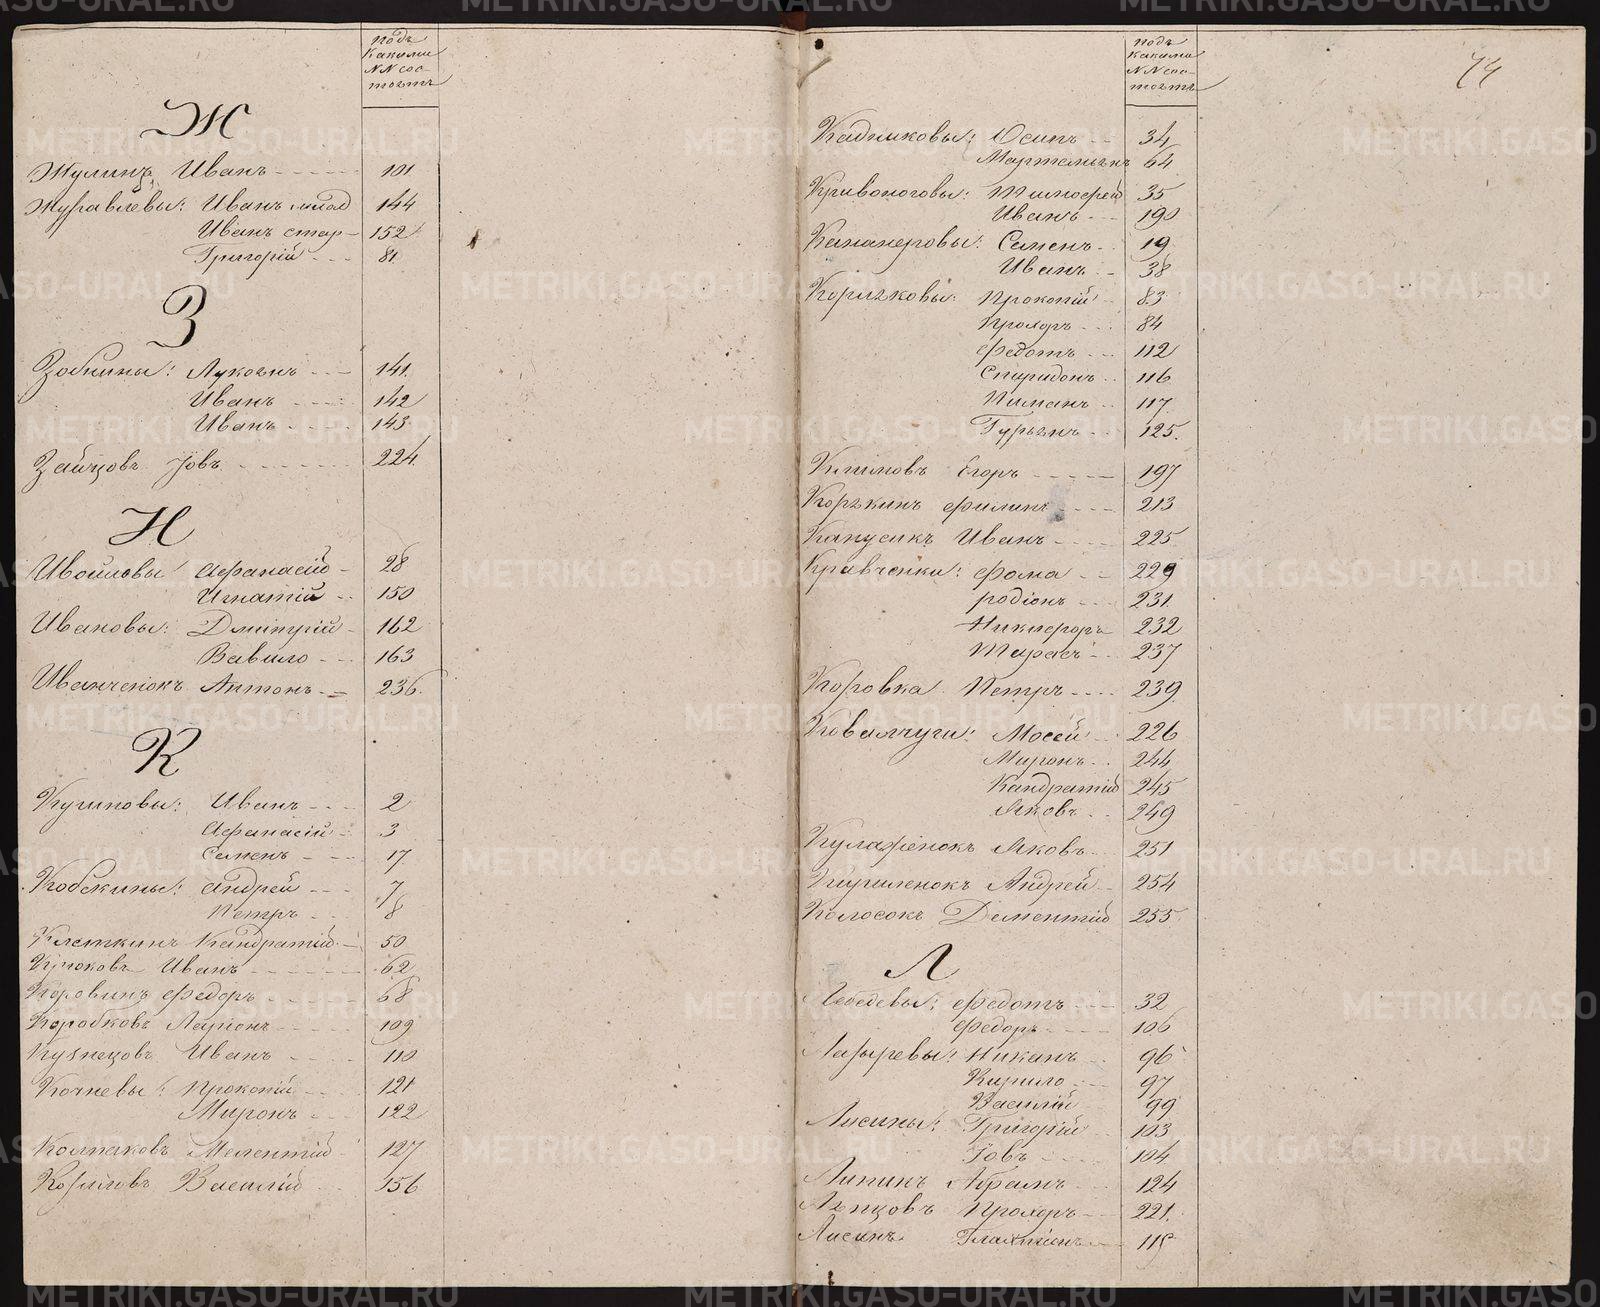 подъ
какими
NN сос-
тоятъ
Ж
Жулинъ Иванъ 101
Журавлевы: Иванъ млад 144
Иванъ стар 152
Григорій 81
З
Зобнины: Лукоянъ 141
Иванъ 142
Иванъ 143
Зайцовъ Іовъ 224
И
Ивойловы Афанасій 28
Игнатій 150
Ивановы: Дмитрій 162
Вавило 163
Иванченокъ Антонъ 236
К
Кугиновы: Иванъ 2
Афанасій 3
Семенъ 17
Кобекины: Андрей 7
Петръ 8
Клеткинъ Кандратій 50
Крюковъ Иванъ 62
Коровинъ Федоръ 68
Коробковъ Ларіонъ 109
Кузнецовъ Иванъ 110
Кочневы: Прокопій 121
Миронъ 122
Колпаковъ Мелентій 127
Василій 156
подъ
какими
NN сос-
тоятъ
74
Кадниковы: Осипъ 34
Мартемьянъ 64
Кривоноговы: Тимофей 35
Иванъ 190
Канонеровы: Семенъ 19
Иванъ 38
Коряковы: Прокопій 83
Прохоръ 84
Федотъ 112
Спиридонъ 116
Пиманъ 117
Гурьянъ 125
Климовъ Егоръ 197
Корѣкинъ Филипъ 213
Капусикъ Иванъ 225
Кравченки: Фома 229
Родіонъ 231
Никифоръ 232
Тарасъ 237
Коровка Петръ 239
Ковалчуги: Мосей 226
Миронъ 244
Кандратій 245
Яковъ 249
Кулаженокъ Яковъ 251
Кириленокъ Андрей 254
Колосокъ Дементій 255
Л
Лебедевы: Федотъ 32
Федоръ 106
Лазыревы: Никанъ 96
Кирило 97
Василій 99
Лисины: Григорій 103
Іовъ 104
Липинъ Абрамъ 124
Лѣпцовъ Прохоръ 221
Лисинъ Галахтіонъ 115
METRIKI.GASO-URAL.RU